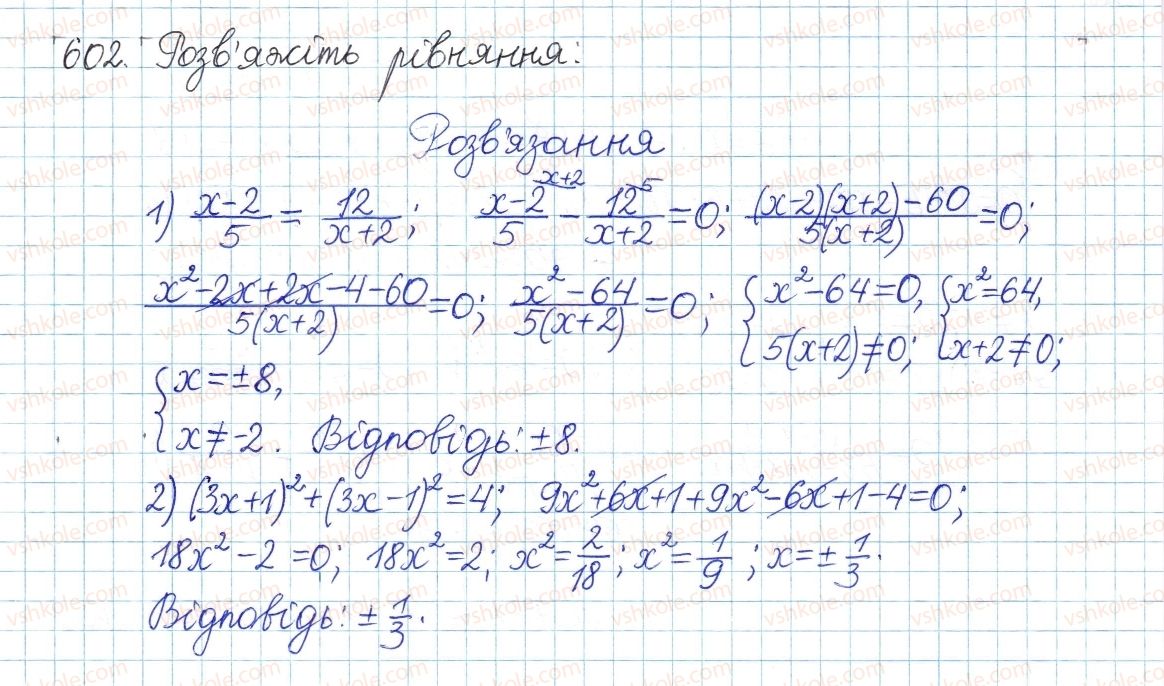 602. Розв'яжіть рівняння:
Розв'язання
1) (x-2)/5 = 12/(x+2); (x-2)/5^(x+2) - 12/(x+2)^5 = 0; ((x-2)(x+2)-60)/(5(x+2)) = 0;
(x²-2x+2x-4-60)/(5(x+2)) = 0; (x²-64)/(5(x+2)) = 0; { x²-64=0, 5(x+2)≠0; { x²=64, x+2≠0;
{ x=±8, x≠-2. Відповідь: ±8.
2) (3x+1)²+(3x-1)²=4; 9x²+6x+1+9x²-6x+1-4=0;
18x²-2=0; 18x²=2; x²=2/18; x²=1/9; x=±1/3.
Відповідь: ±1/3.